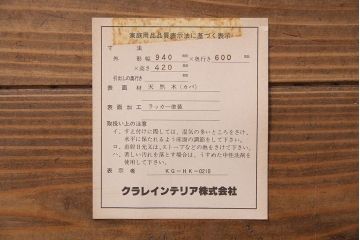 家庭用品品質表示法に基づく表示
寸法
外形幅 940 mm ×奥行き 600 mm
×高さ 420 mm
引出しの奥行き
表面材 天然木(カバ)
表面加工 ラッカー塗装
取扱い上の注意
イ、すえ付けに際しては、湿気の多いところをさけ、
水平に保たれるよう床面の調節をして下さい。
ロ、直射日光又は、ストーブなどの熱をさけて下さい。
ハ、著しい汚れを落とす場合は、うすめた中性洗剤を
使用して下さい。
表示者 KG-HK-0210
クラレインテリア株式会社